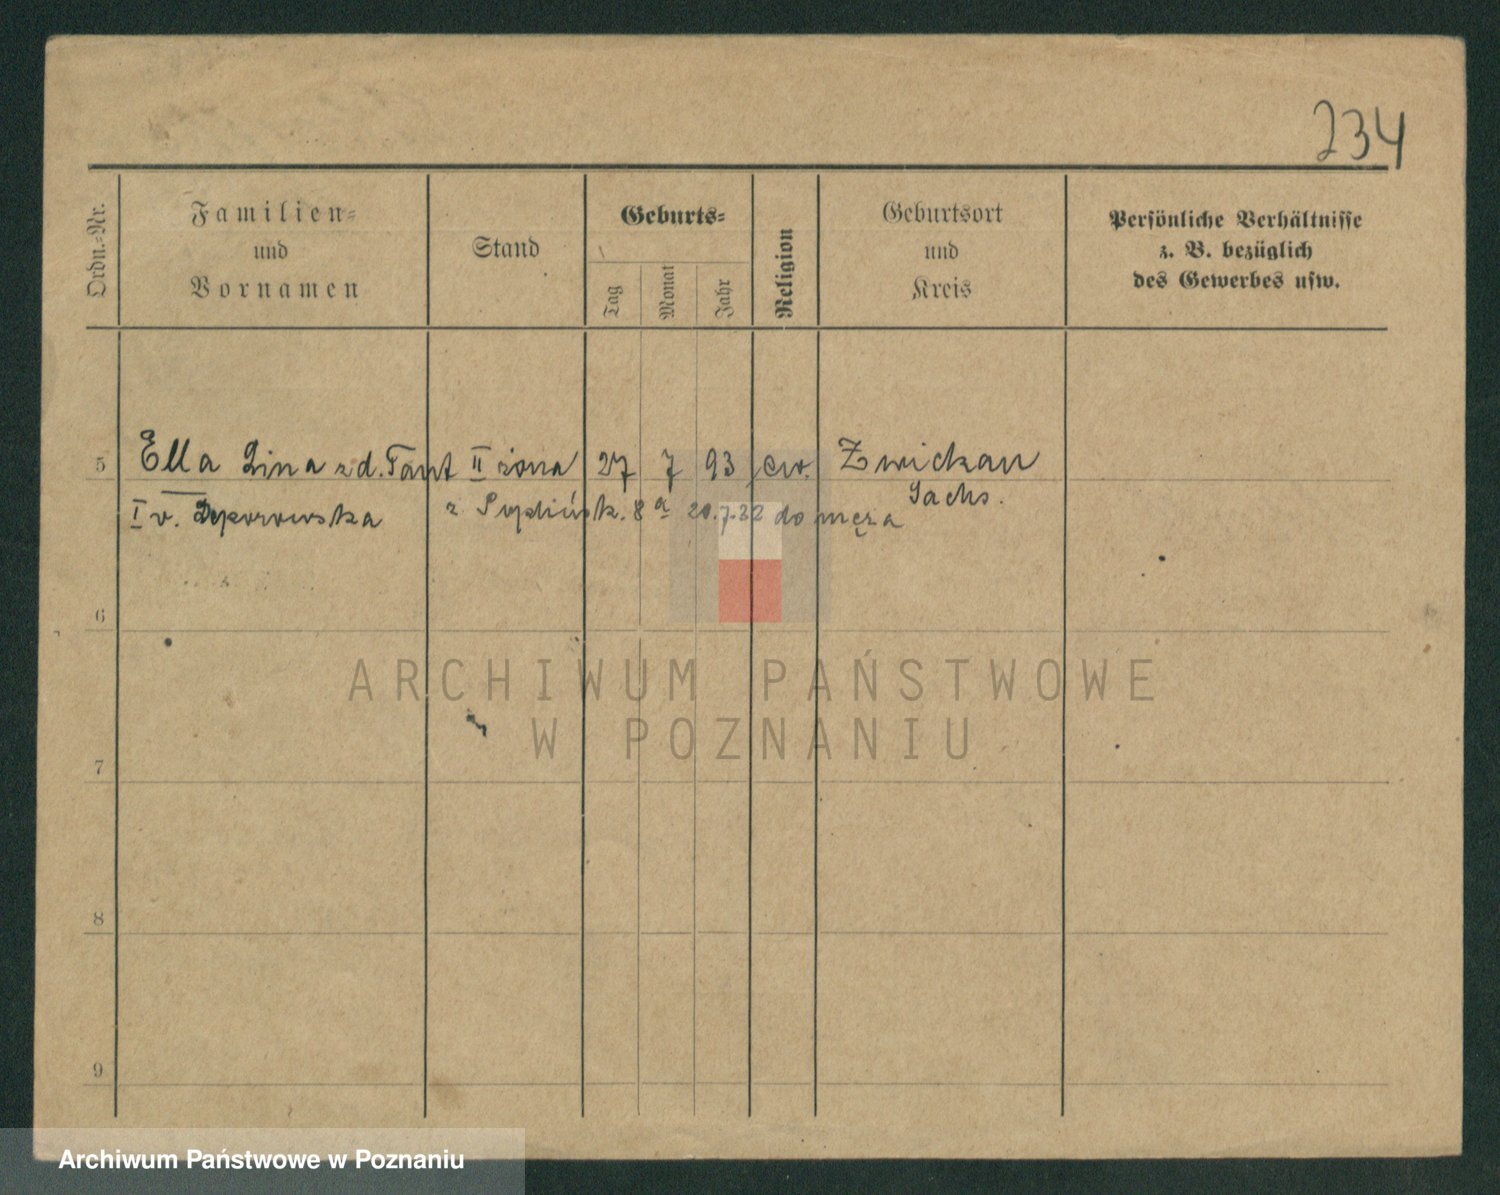 234
Ordn.=Nr.
Familien=
und
Vornamen
Stand
Geburts=
Tag
Monat
Jahr
Religion
Geburtsort
und
Kreis
Persönliche Verhältnisse
z. B. bezüglich
des Gewerbes usw.
5 Ella Lina zd. II żona 27 7 93 ew. Zwickau
Sachs.
I v. z 8 a 20.7.32 do męża
6
7
8
9
ARCHIWUM PAŃSTWOWE
W POZNANIU
Archiwum Państwowe w Poznaniu